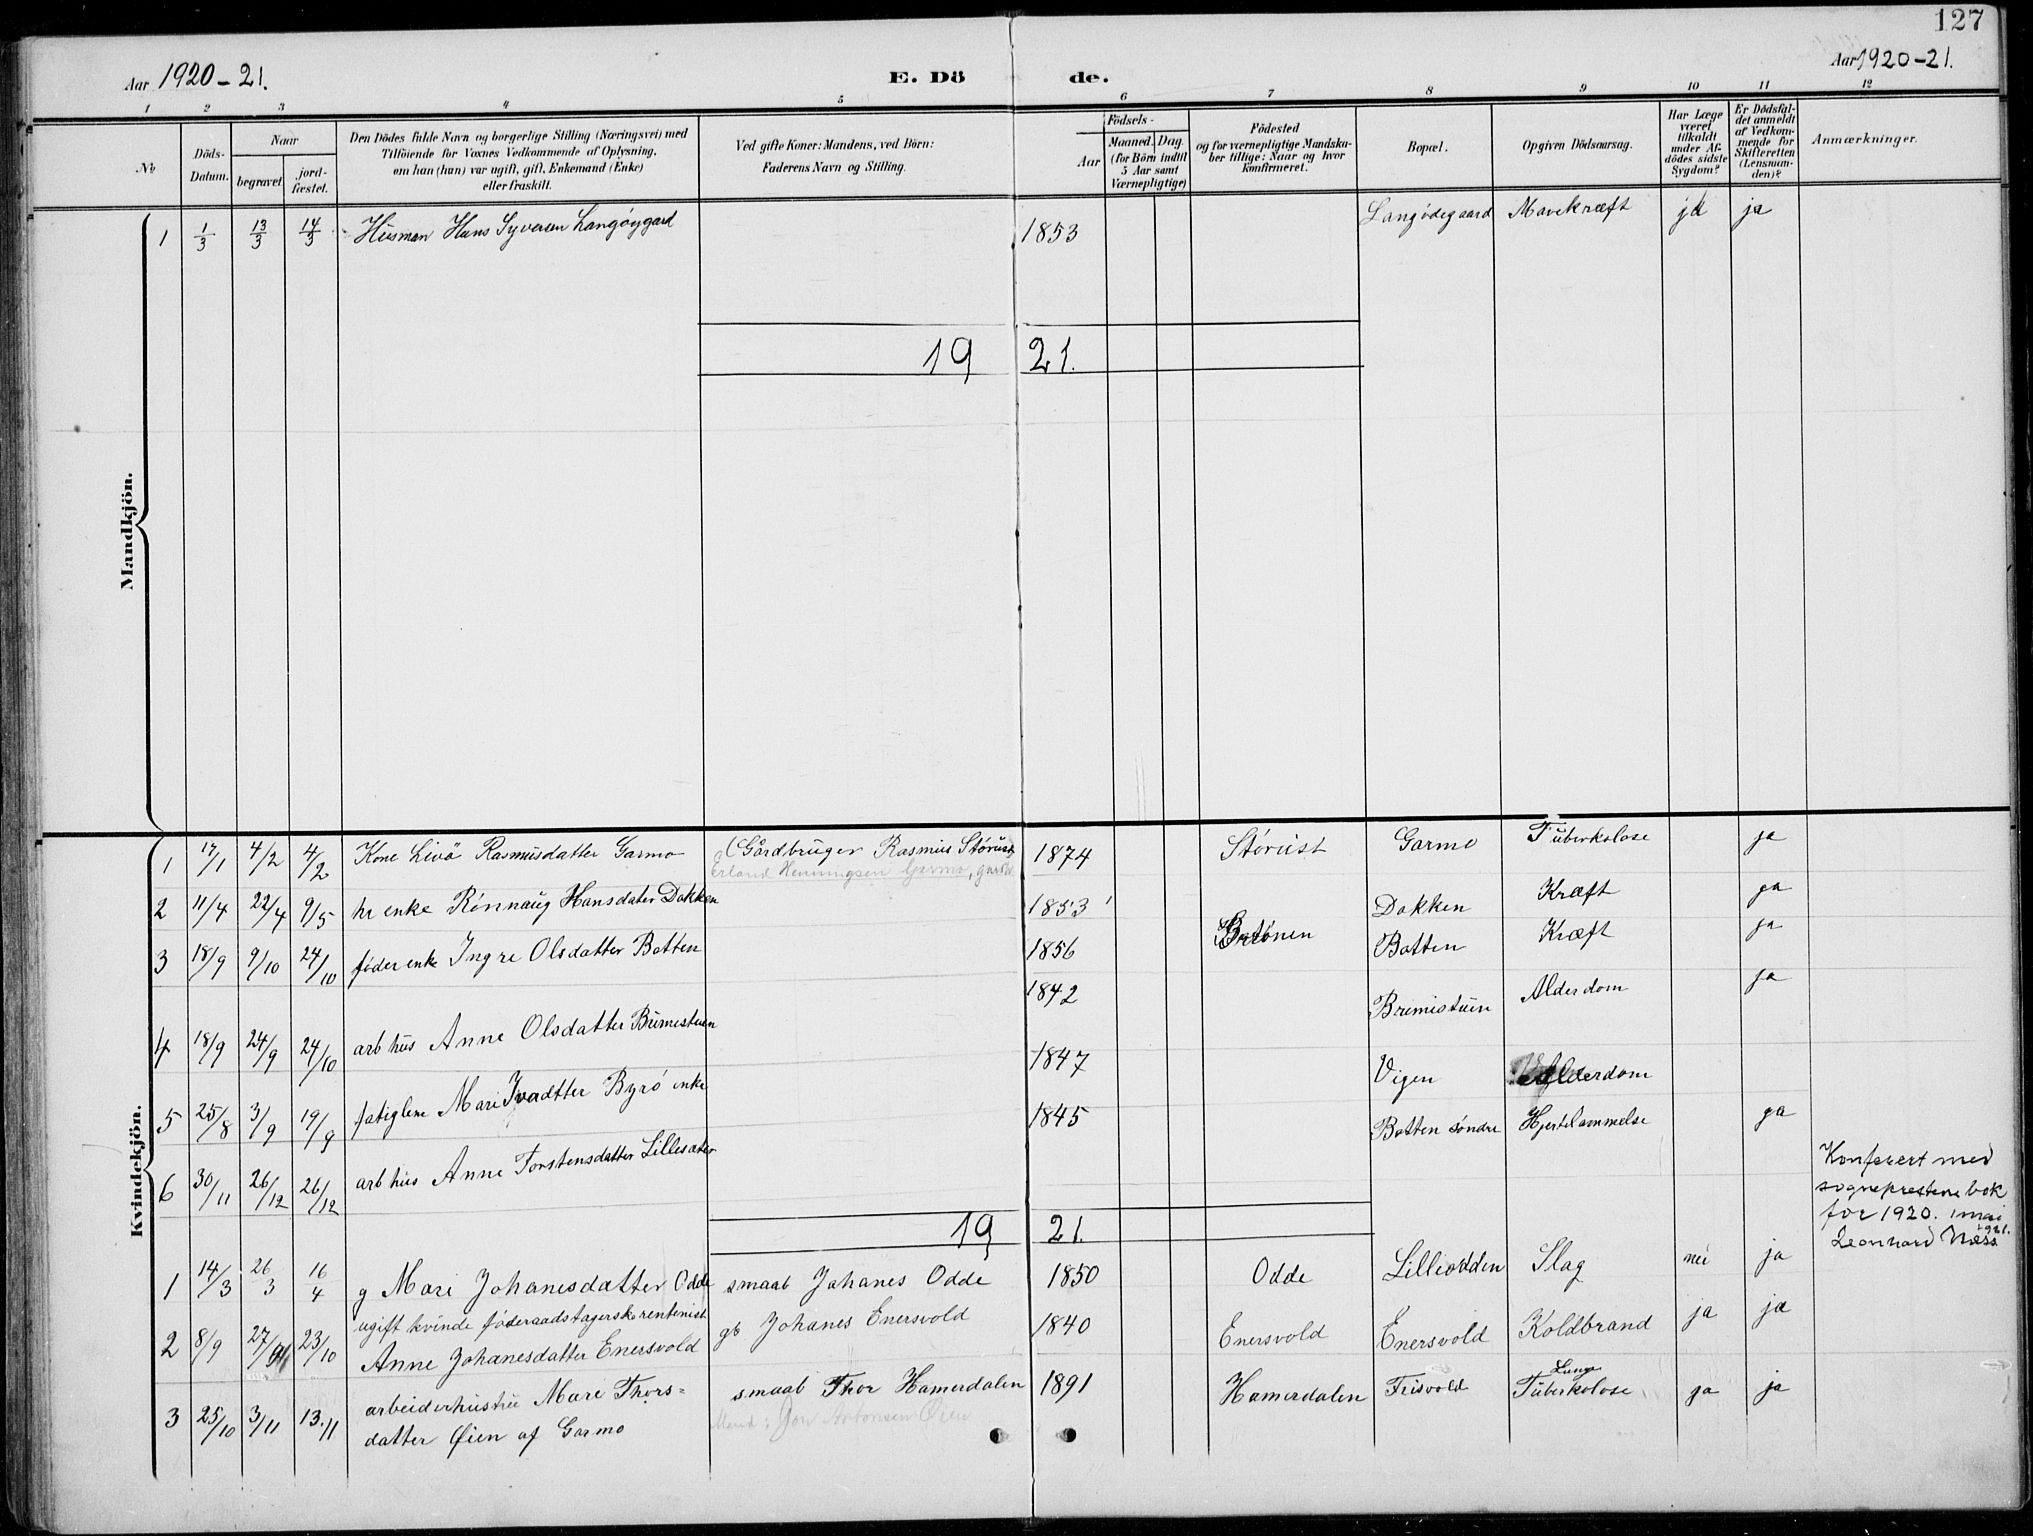 127
Aar 1920-21. E. Dö de. Aar 1920-21.
1 2 3 4 5 6 7 8 9 10 11 12
No.
Döds-
Datum.
Naar
begravet.
jord-
fæstet.
Den Dödes fulde Navn og borgerlige Stilling (Næringsvei) med
Tilföiende for Voxnes Vedkommende af Oplysning,
om han (hun) var ugift, gift, Enkemand (Enke)
eller fraskilt.
Ved gifte Koner: Mandens, ved Börn:
Faderens Navn og Stilling.
Födsels-
Aar
Maaned. Dag.
(for Börn indtil
5 Aar samt
Værnepligtige)
Födested
og for værnepligtige Mandska-
ber tillige: Naar og hvor
konfirmeret.
Bopæl.
Opgiven Dödsaarsag.
Har Læge
været
tilkaldt
under Af-
dödes sidste
Sygdom?
Er Dödsfal-
det anmeldt
af Vedkom-
mende for
Skifteretten
(Lensman-
den)?
Anmærkninger.
Mandkjön.
1 1/3 13/3 14/3 Husman Hans Syversen Langøygard 1853 Langødegaard Mavekræft ja ja
19 21.
Kvindekjön.
1 17/1 4/2 4/2 Kone Livö Rasmusdatter Garmo (Gårdbruger Rasmus Störust 1874 Störust Garmo Tuberkolose ja
Erland Henningsen Garmo, gardbr.
2 11/4 22/4 9/5 hr enke Rönnaug Hansdater Dokken 1853 Dokken Kræft ja
3 18/9 9/10 24/10 föderenke Ingre Olsdatter Botten 1856 Botten Kræft ja
4 18/9 24/9 24/10 arb hus Anne Olsdatter Brimistuen 1842 Bremistuen Alderdom ja
5 25/8 3/9 19/9 fatiglem Mari Ivadtter Byrö enke 1847 Vigen Alderdom
6 30/11 26/12 26/12 arb hus Anne Torstensdatter Lillesæter 1845 Botten söndre Hjertelammelse ja
Konferert med
sogneprestens bok
for 1920. 1 mai
1921.
Leonhard Næss
19 21.
1 14/3 26/3 16/4 g Mari Johanesdatter Odde smaab Johanes Odde 1850 Odde Lilleodden Slag nei ja
2 8/9 27/9 23/10 ugift kvinde föderaadstagerske rentenist gb Johanes Enersvold 1840 Enersvold Enersvold Koldbrand ja ja
Anne Johanesdatter Enersvold
3 25/10 3/11 13/11 arbeiderhustru Mari Thors= smaab Thor Hamerdalen 1891 Hamerdalen Frisvold Lunge Tuberkolose ja ja
datter Øien af Garmo Mand: Jon Antonsen Øien